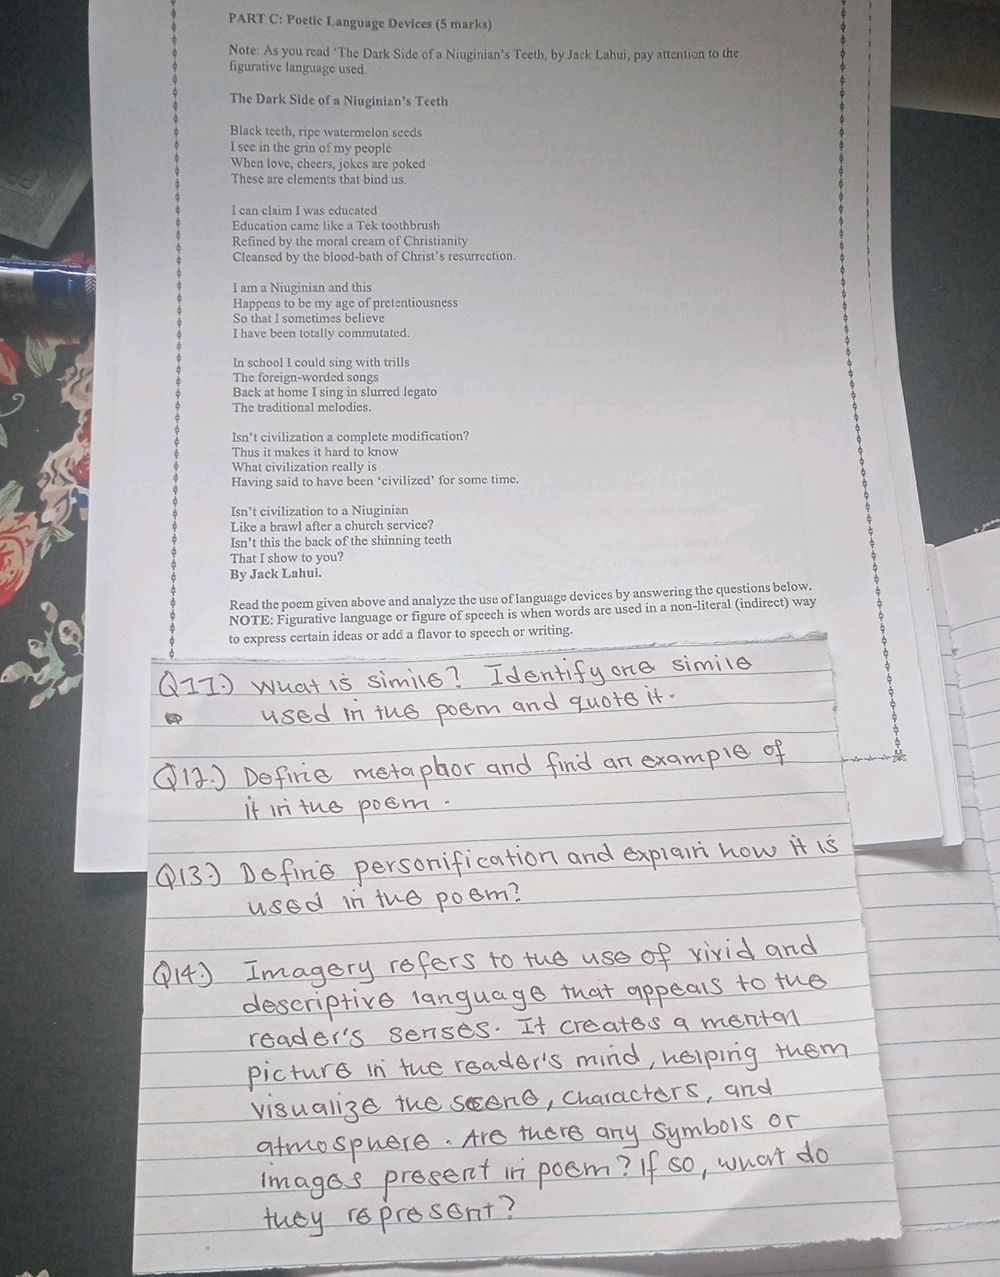 PART C: Poetic Language Devices (5 marks)
Note: As you read 'The Dark Side of a Niuginian's Teeth, by Jack Lahui, pay attention to the
figurative language used.
The Dark Side of a Niuginian's Teeth
Black teeth, ripe watermelon seeds
I see in the grin of my people
When love, cheers, jokes are poked
These are elements that bind us.
I can claim I was educated
Education came like a Tek toothbrush
Refined by the moral cream of Christianity
Cleansed by the blood-bath of Christ's resurrection.
I am a Niuginian and this
Happens to be my age of pretentiousness
So that I sometimes believe
I have been totally commutated.
In school I could sing with trills
The foreign-worded songs
Back at home I sing in slurred legato
The traditional melodies.
Isn't civilization a complete modification?
Thus it makes it hard to know
What civilization really is
Having said to have been 'civilized' for some time.
Isn't civilization to a Niuginian
Like a brawl after a church service?
Isn't this the back of the shinning teeth
That I show to you?
By Jack Lahui.
Read the poem given above and analyze the use of language devices by answering the questions below.
NOTE: Figurative language or figure of speech is when words are used in a non-literal (indirect) way
to express certain ideas or add a flavor to speech or writing.
Q11.) What is simile? Identify one simile
used in the poem and quote it.
Q12.) Define metaphor and find an example of
it in the poem.
Q13.) Define personification and explain how it is
used in the poem?
Q14.) Imagery refers to the use of vivid and
descriptive language that appeals to the
reader's senses. It creates a mental
picture in the reader's mind, helping them
visualize the scene, characters, and
atmosphere. Are there any symbols or
images present in poem? If so, what do
they represent?